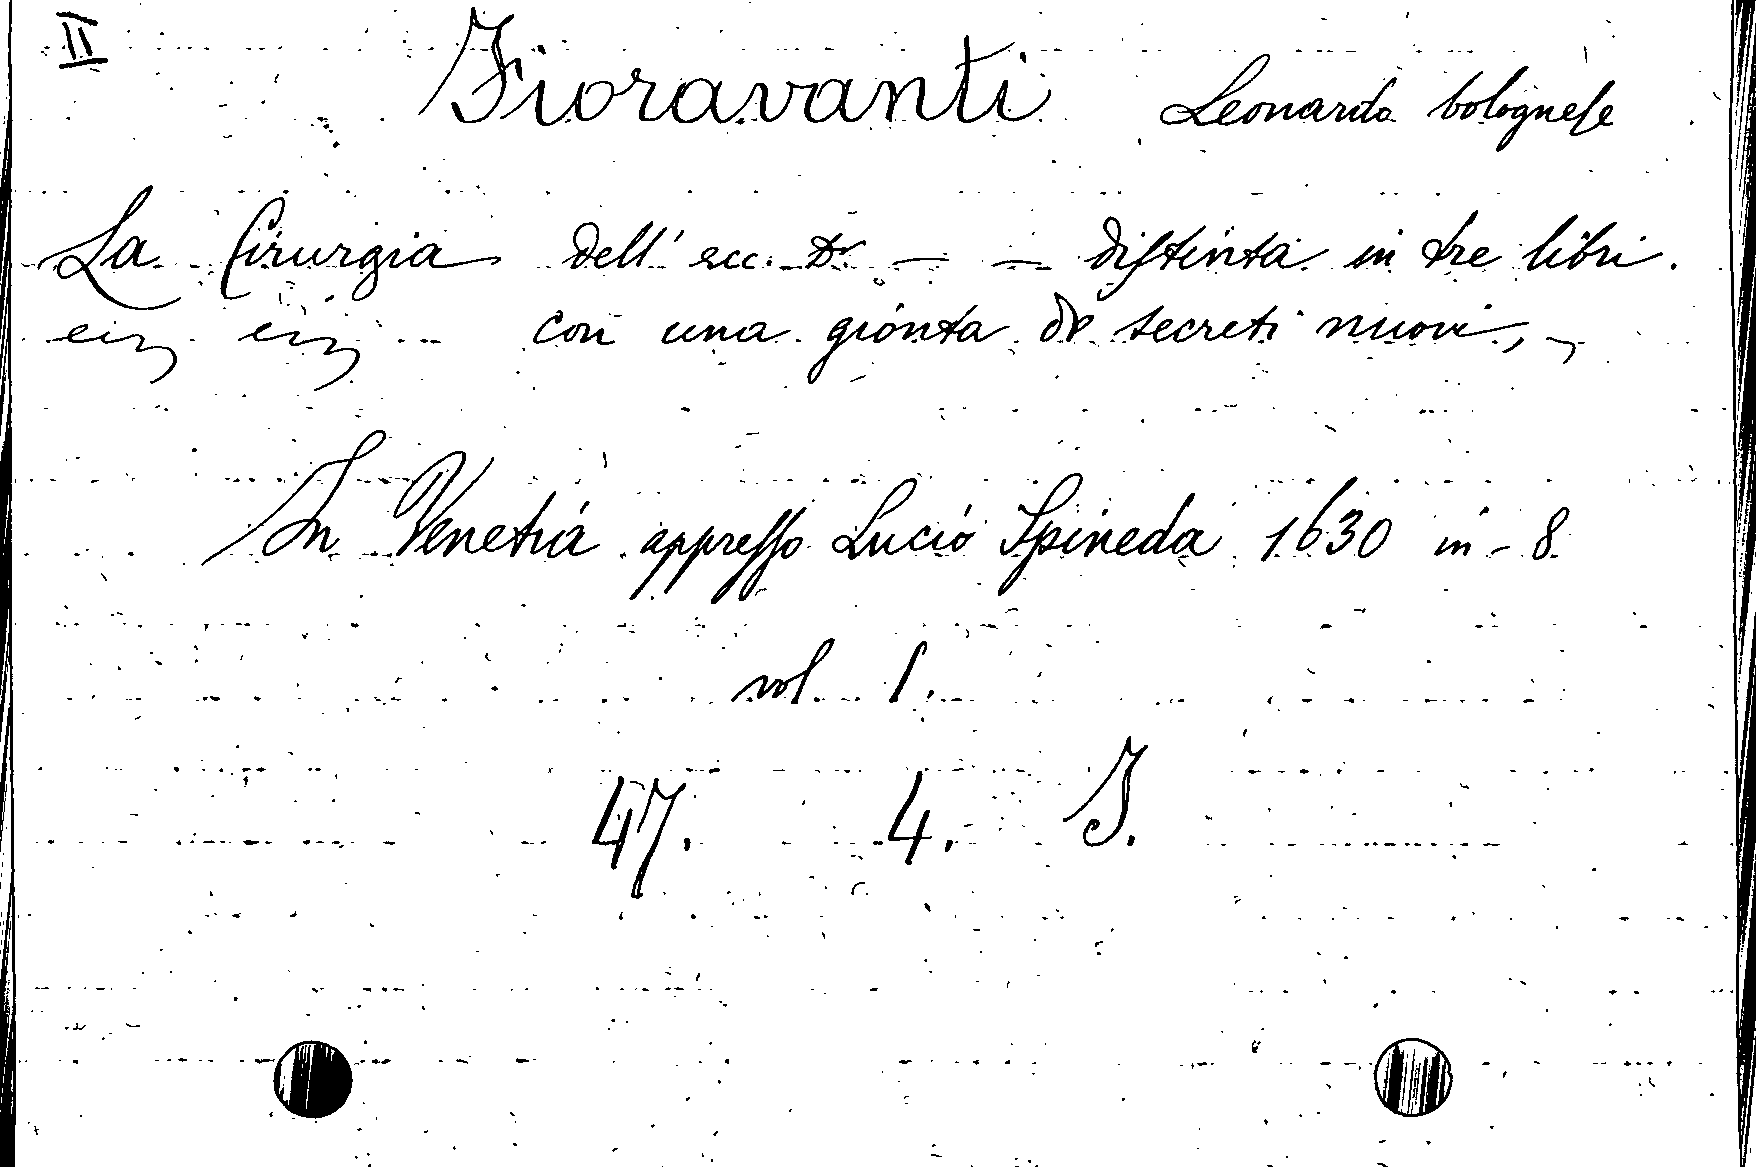 II
Fioravanti Leonardo bolognese
La Cirurgia dell' ecc. Dr — — distinta in tre libri.
con una gionta de secreti nuovi,
In Venetia appresso Lucio Spineda 1630 in-8
vol 1.
47. 4. J.